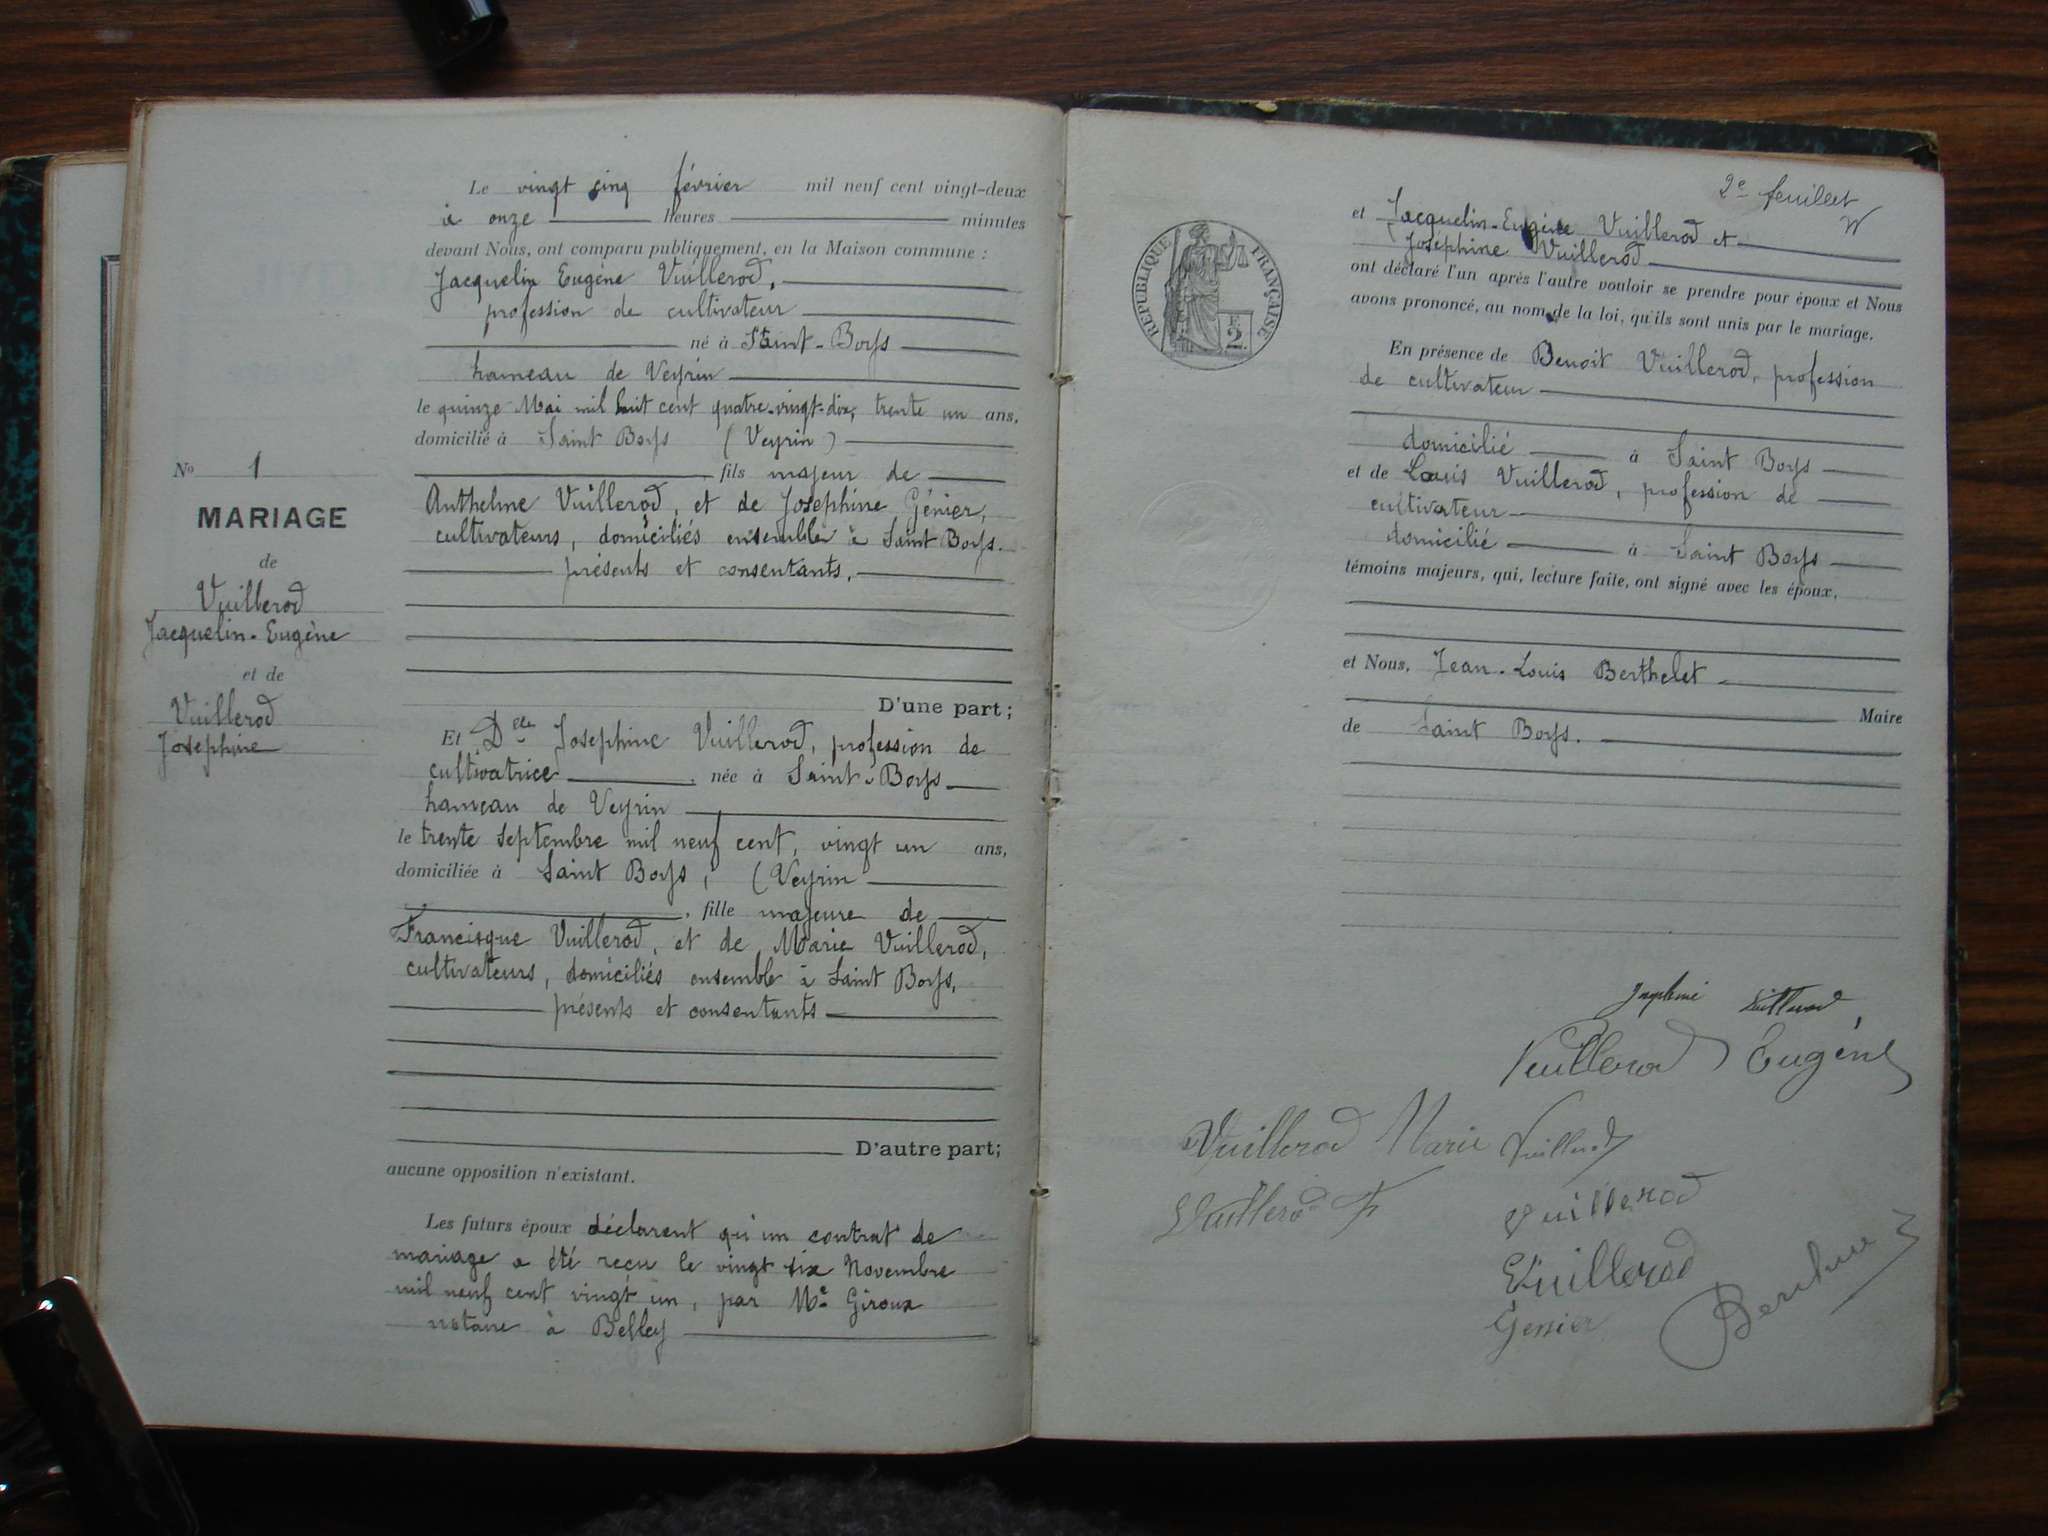 Le vingt cinq février mil neuf cent vingt-deux
à onze heures minutes
devant Nous, ont comparu publiquement, en la Maison commune :
Jacquelin Eugène Vuillerod,
profession de cultivateur
né à Saint-Boys
hameau de Veyrin
le quinze Mai mil huit cent quatre-vingt-dix, trente un ans,
domicilié à Saint Boys (Veyrin)
fils majeur de
Anthelme Vuillerod, et de Josephine Génier,
cultivateurs, domiciliés ensemble à Saint Boys.
présents et consentants,
D'une part ;
Et Delle Josephine Vuillerod, profession de
cultivatrice , née à Saint-Boys
hameau de Veyrin
le trente septembre mil neuf cent, vingt un ans,
domiciliée à Saint Boys, (Veyrin
, fille majeure de
Francisque Vuillerod, et de Marie Vuillerod,
cultivateurs, domiciliés ensemble à Saint Boys,
présents et consentants
D'autre part;
aucune opposition n'existant.
Les futurs époux déclarent qu'un contrat de
mariage a été reçu le vingt six Novembre
mil neuf cent vingt un, par Me Giroux
notaire à Belley
No 1
MARIAGE
de
Vuillerod
Jacquelin-Eugène
et de
Vuillerod
Josephine
2e feuillet
RÉPUBLIQUE FRANÇAISE
2
et Jacquelin-Eugène Vuillerod et
Josephine Vuillerod
ont déclaré l'un après l'autre vouloir se prendre pour époux et Nous
avons prononcé, au nom de la loi, qu'ils sont unis par le mariage.
En présence de Benoit Vuillerod, profession
de cultivateur
domicilié à Saint Boys
et de Louis Vuillerod, profession de
cultivateur
domicilié à Saint Boys
témoins majeurs, qui, lecture faite, ont signé avec les époux,
et Nous, Jean-Louis Berthelet
Maire
de Saint Boys.
Josephine Vuillerod
Vuillerod Eugène
Vuillerod Marie Vuillerod
Vuillerod F
Vuillerod
Vuillerod
Génier